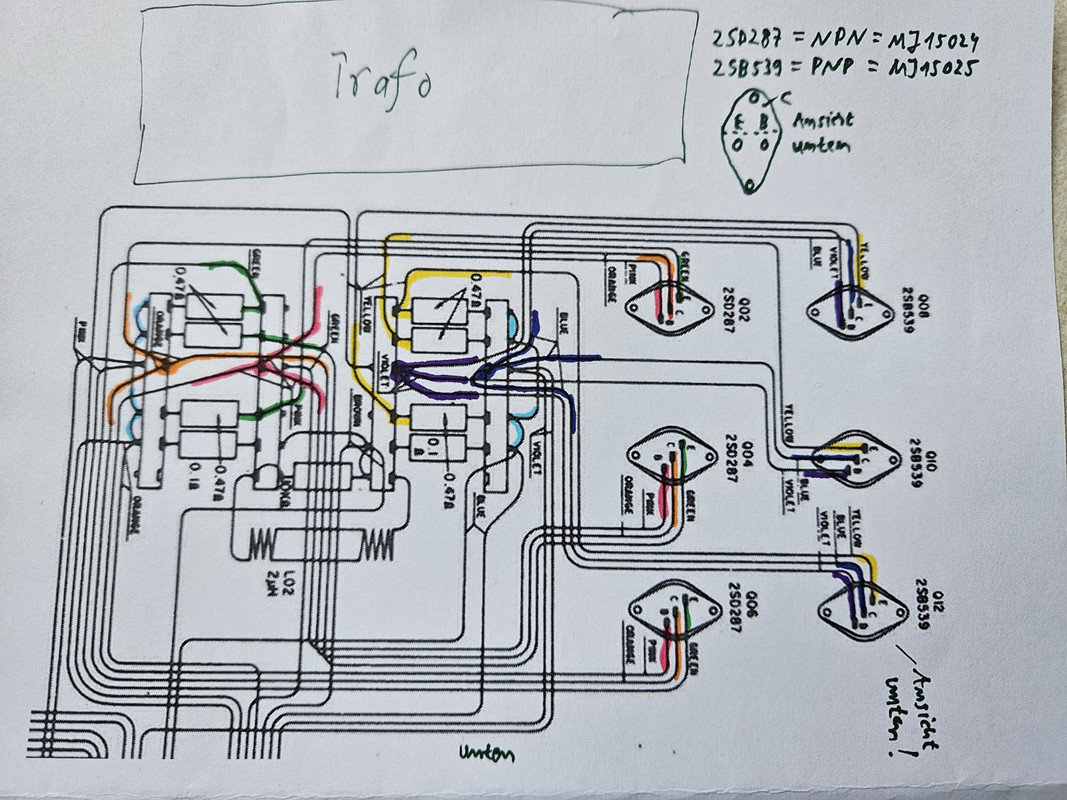 Trafo
2SD287 = NPN = MJ15024
2SB539 = PNP = MJ15025
C
E B
Ansicht
unten
GREEN
0.47Ω
ORANGE
PINK
GREEN
PINK
0.47Ω
0.1Ω
ORANGE
10KΩ
L02
2µH
YELLOW
0.47Ω
VIOLET
BROWN
BLUE
0.1
Ω
0.47Ω
VIOLET
BLUE
GREEN
PINK
ORANGE
E
C
B
Q02
2SD287
YELLOW
VIOLET
BLUE
E
C
B
Q08
2SB539
E
C
B
Q04
2SD287
GREEN
PINK
ORANGE
YELLOW
BLUE
VIOLET
E
C
B
Q10
2SB539
YELLOW
BLUE
VIOLET
E
C
B
Q12
2SB539
E
C
B
Q06
2SD287
GREEN
PINK
ORANGE
Ansicht
unten!
unten